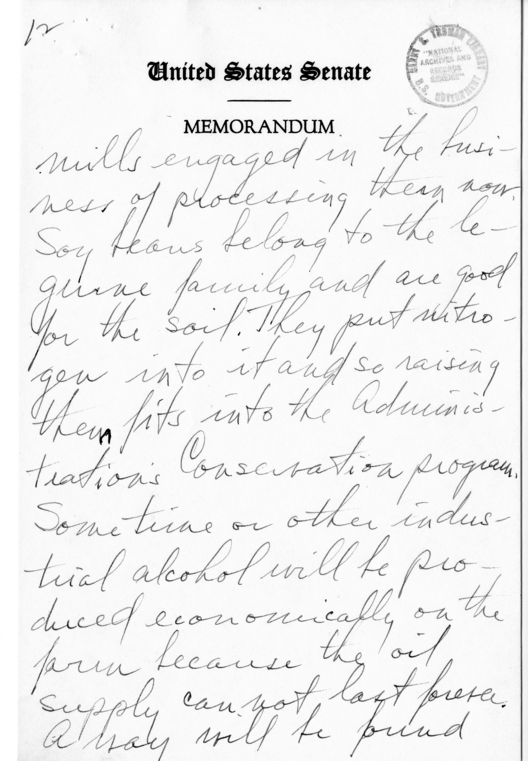 12
HARRY S. TRUMAN LIBRARY
"NATIONAL
ARCHIVES AND
RECORDS
SERVICE"
U.S. GOVERNMENT
United States Senate
MEMORANDUM
mills engaged in the busi-
ness of processing them now.
Soy beans belong to the le-
gume family and are good
for the soil. They put nitro-
gen into it and so raising
them fits into the Adminis-
trations Conservation program.
Sometime or other indus-
trial alcohol will be pro-
duced economically on the
farm because the oil
supply can not last forever.
A way will be found